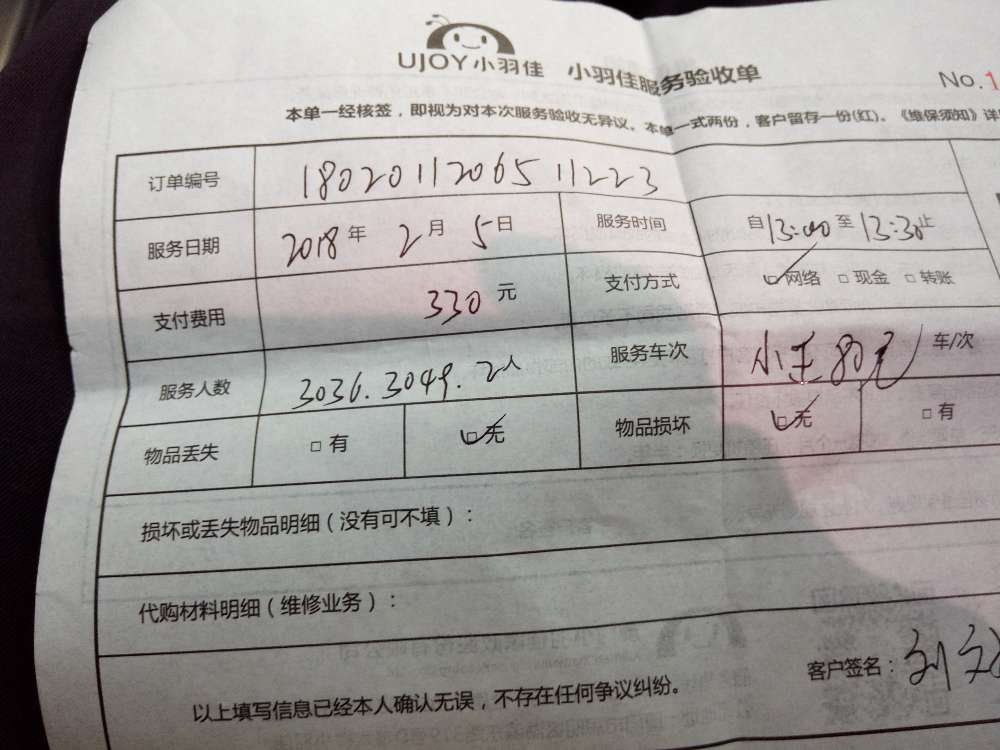 UJOY小羽佳 小羽佳服务验收单
No.1
本单一经核签，即视为对本次服务验收无异议。本单一式两份，客户留存一份(红)。《维保须知》详
订单编号 1802011206511223
服务日期 2018年 2月 5日 服务时间 自13:00至13:30止
支付费用 330元 支付方式 ☑网络 □现金 □转账
服务人数 3036.3049.2人 服务车次 小王80元 车/次
物品丢失 □有 ☑无 物品损坏 ☑无 □有
损坏或丢失物品明细（没有可不填）：
代购材料明细（维修业务）：
客户签名：刘
以上填写信息已经本人确认无误，不存在任何争议纠纷。